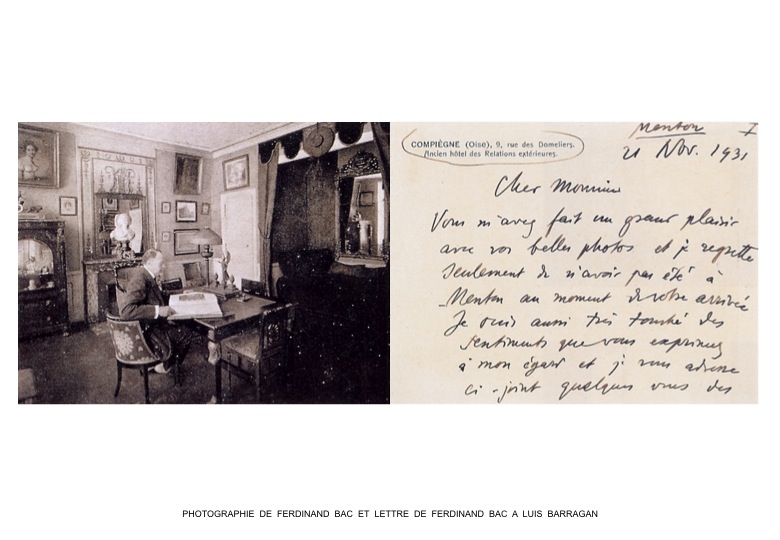 Menton I
COMPIÈGNE (Oise), 9, rue des Domeliers.
Ancien hôtel des Relations extérieures.
21 Nov. 1931
Cher Monsieur
Vous m'avez fait un grand plaisir
avec vos belles photos et je regrette
seulement de n'avoir pas été à
Menton au moment de votre arrivée
Je suis aussi très touché des
sentiments que vous exprimez
à mon égard et je vous adresse
ci-joint quelques vues des
PHOTOGRAPHIE DE FERDINAND BAC ET LETTRE DE FERDINAND BAC A LUIS BARRAGAN